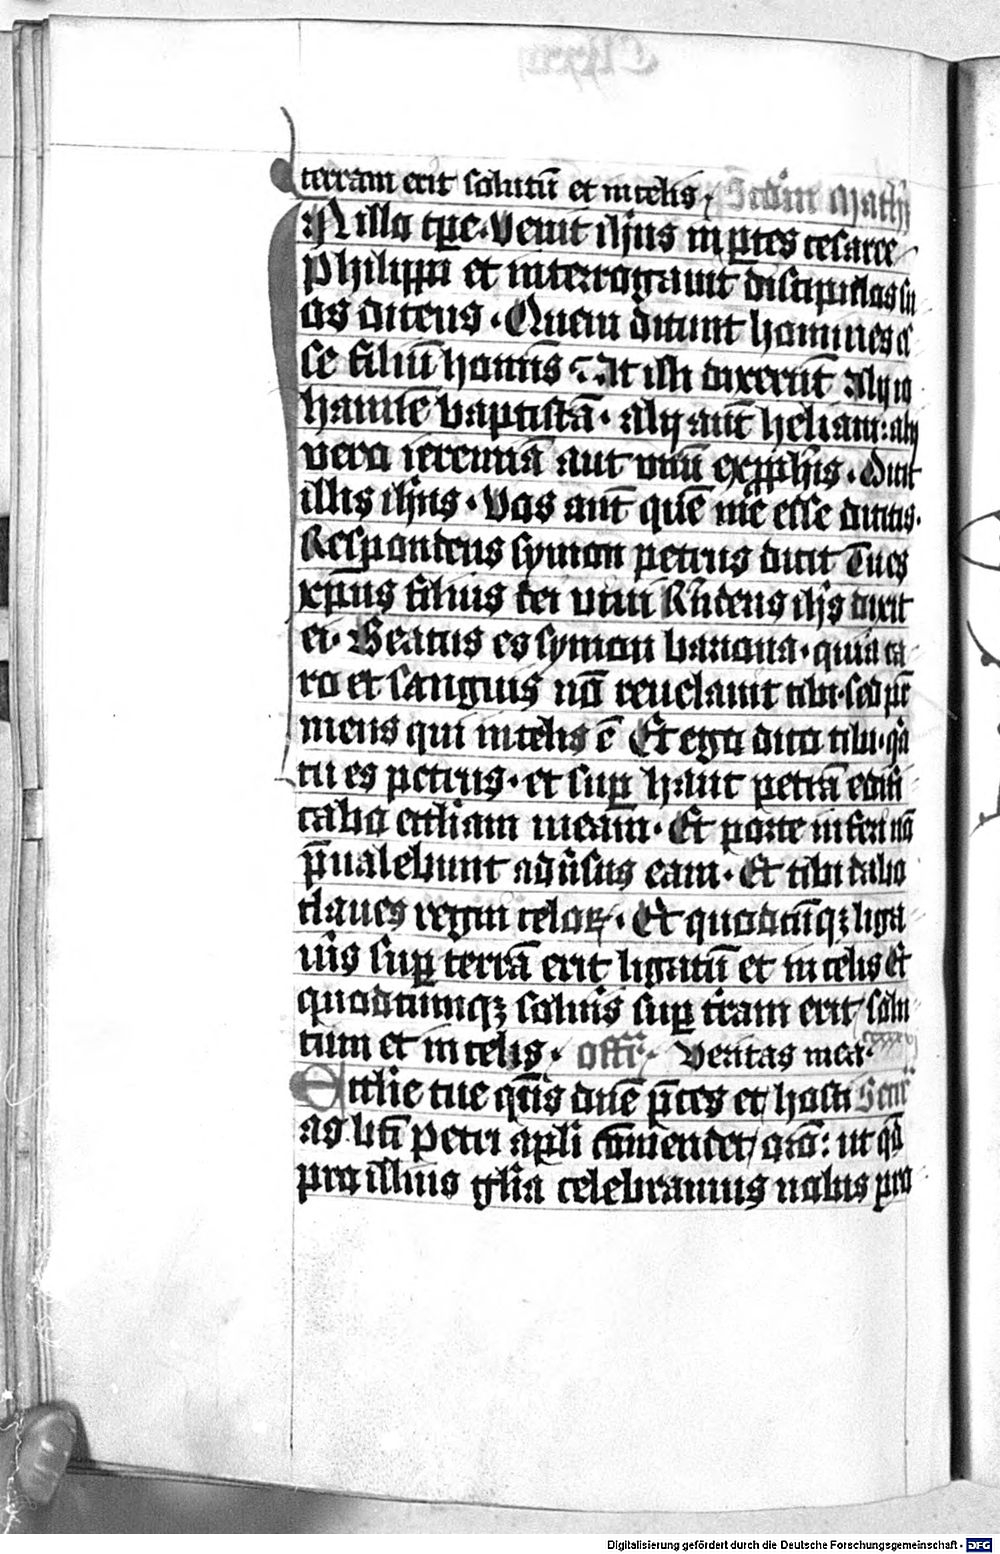 terram erit solutū et in celis, Scdm̄ Mathƺ
In illo tp̄e. Venit ih̄us in ꝑtes cesaree
philippi et interrogauit discipulos su
os dicens. Quem dicunt homines es
se filiū homīs. At illi dixerūt Alij io
hannē baptistā. alij aūt heliam: alij
vero ieremiā aut vnū ex ꝓphīs. Dicit
illis ih̄us. Vos aūt quē me esse dicitis.
Respondens symon petrus dixit Tu es
xp̄us filius dei viui R̄ndens ih̄s dixit
ei. Beatus es symon bariona. quia ca
ro et sanguis nō reuelauit tibi. sed pr̄
meus qui in celis ē Et ego dico tibi. qꝛ
tu es petrus. et suꝑ hanc petrā edifi
cabo ecc̄liam meam. Et porte inferi nō
p̄ualebunt adūsus eam. Et tibi dabo
claues regni celoꝝ. Et quodcūqꝫ liga
uis suꝑ terrā erit ligatū et in celis Et
quodcumqꝫ soluīs suꝑ t̄ram erit solu
tum et in celis. Off̄r. Veritas mea.
Ecc̄lie tue qs̄ dn̄e p̄ces et hosti Secr̄
as bt̄i petri apl̄i cōmendet oro: ut qd̄
pro illius gl̄ia celebramus nobis pro
Digitalisierung gefördert durch die Deutsche Forschungsgemeinschaft - DFG